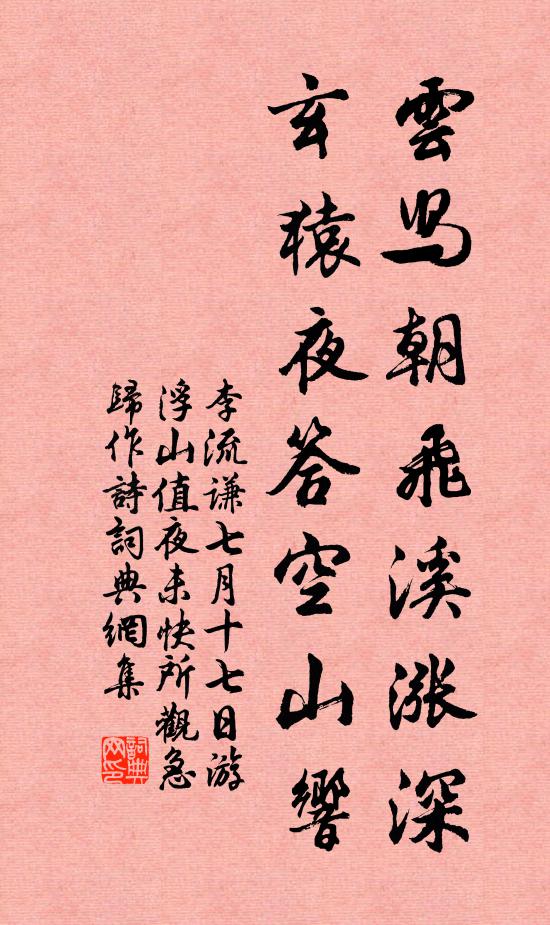 雲鳥朝飛溪漲深
玄猿夜答空山響
李流谦七月十七日游
浮山值夜未快所觀急
歸作詩詞典網集
詞典網印